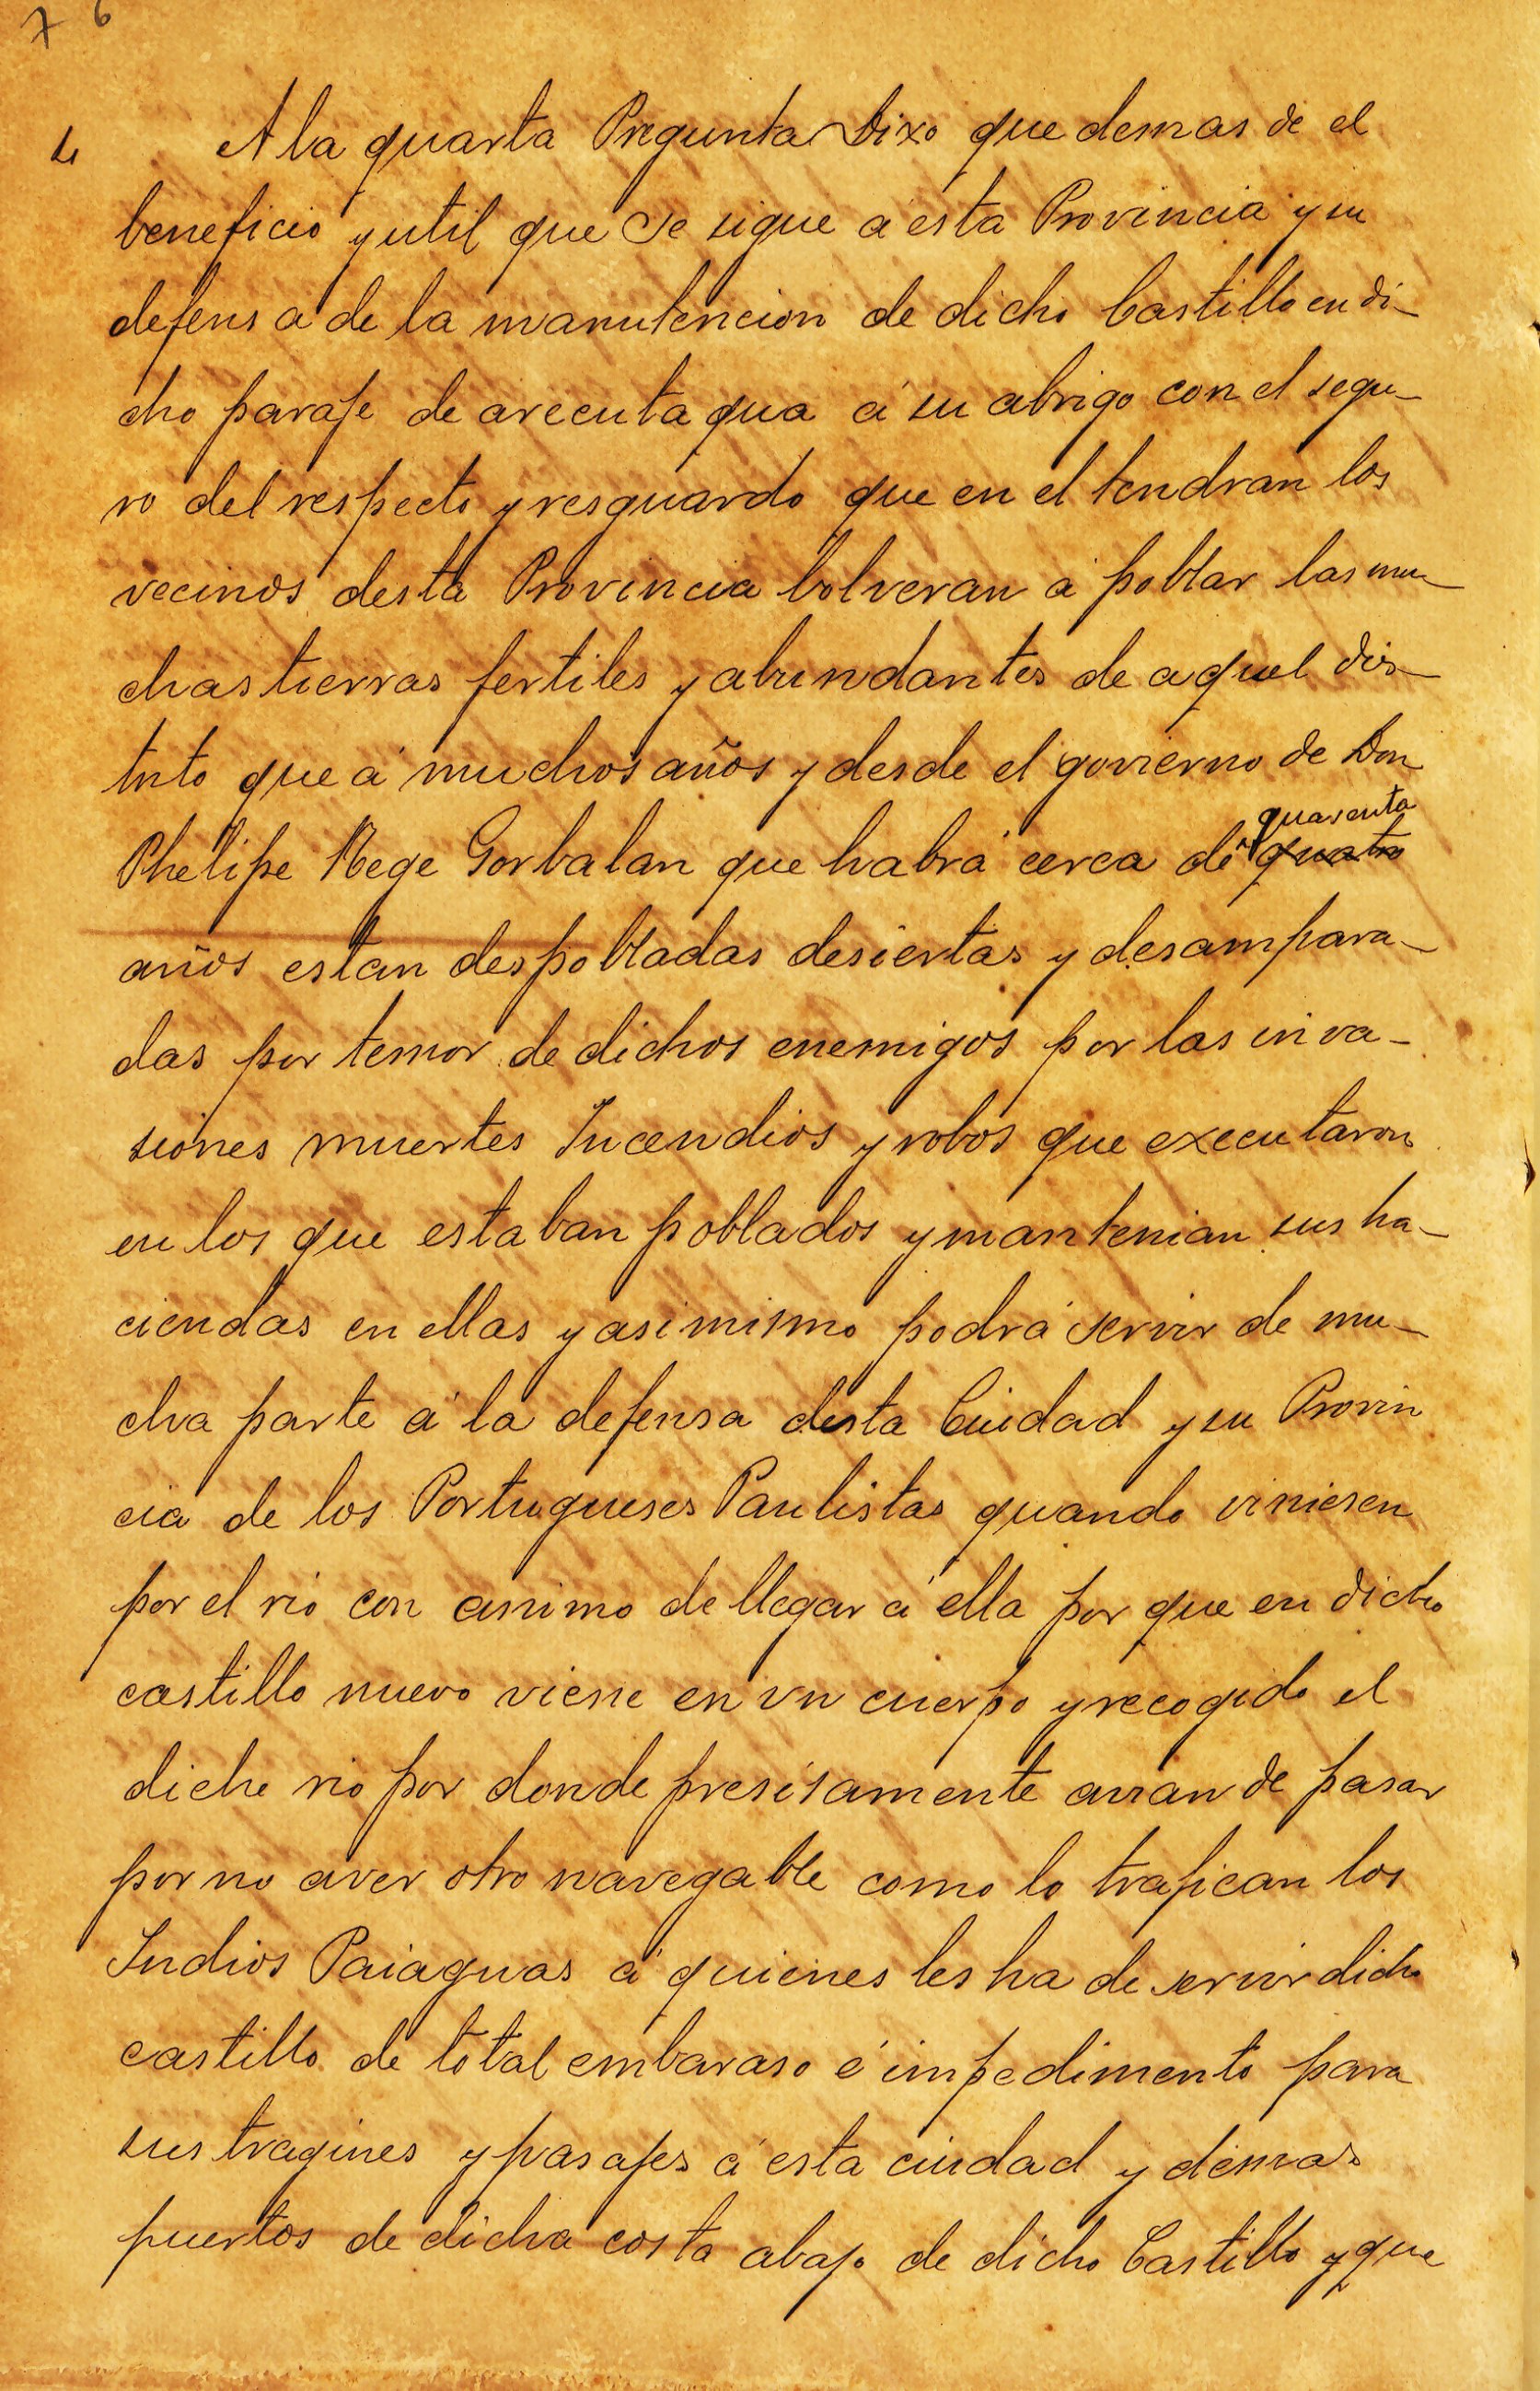 7 6
4 A la quarta Pregunta Dixo que demas de el
beneficio y util que se sigue á esta Provincia y su
defensa de la manutencion de dicho Castillo en di-
cho paraje de arecutaqua á su abrigo con el segu-
ro del respecto y resguardo que en el tendran los
vecinos desta Provincia bolveran á poblar las mu-
chas tierras fertiles y abundantes de aquel dis-
trito que á muchos años y desde el govierno de Don
Phelipe Rege Gorbalan que habrá cerca de quarenta quatro
años estan despobladas desiertas y desampara-
das por temor de dichos enemigos por las inva-
siones muertes Incendios y robos que executaron
en los que estaban poblados y mantenian sus ha-
ciendas en ellas y asi mismo podrá servir de mu-
cha parte á la defensa desta Ciudad y su Provin
cia de los Portugueses Paulistas quando viniesen
por el rio con animo de llegar á ella por que en dicho
castillo nuevo viene en vn cuerpo y recogido el
dicho rio por donde presisamente avran de pasar
por no aver otro navegable como lo trafican los
Indios Paiaguas á quienes les ha de servir dicho
castillo de total embaraso é impedimento para
sus tragines y pasajes á esta ciudad y demas
puertos de dicha costa abajo de dicho Castillo y que